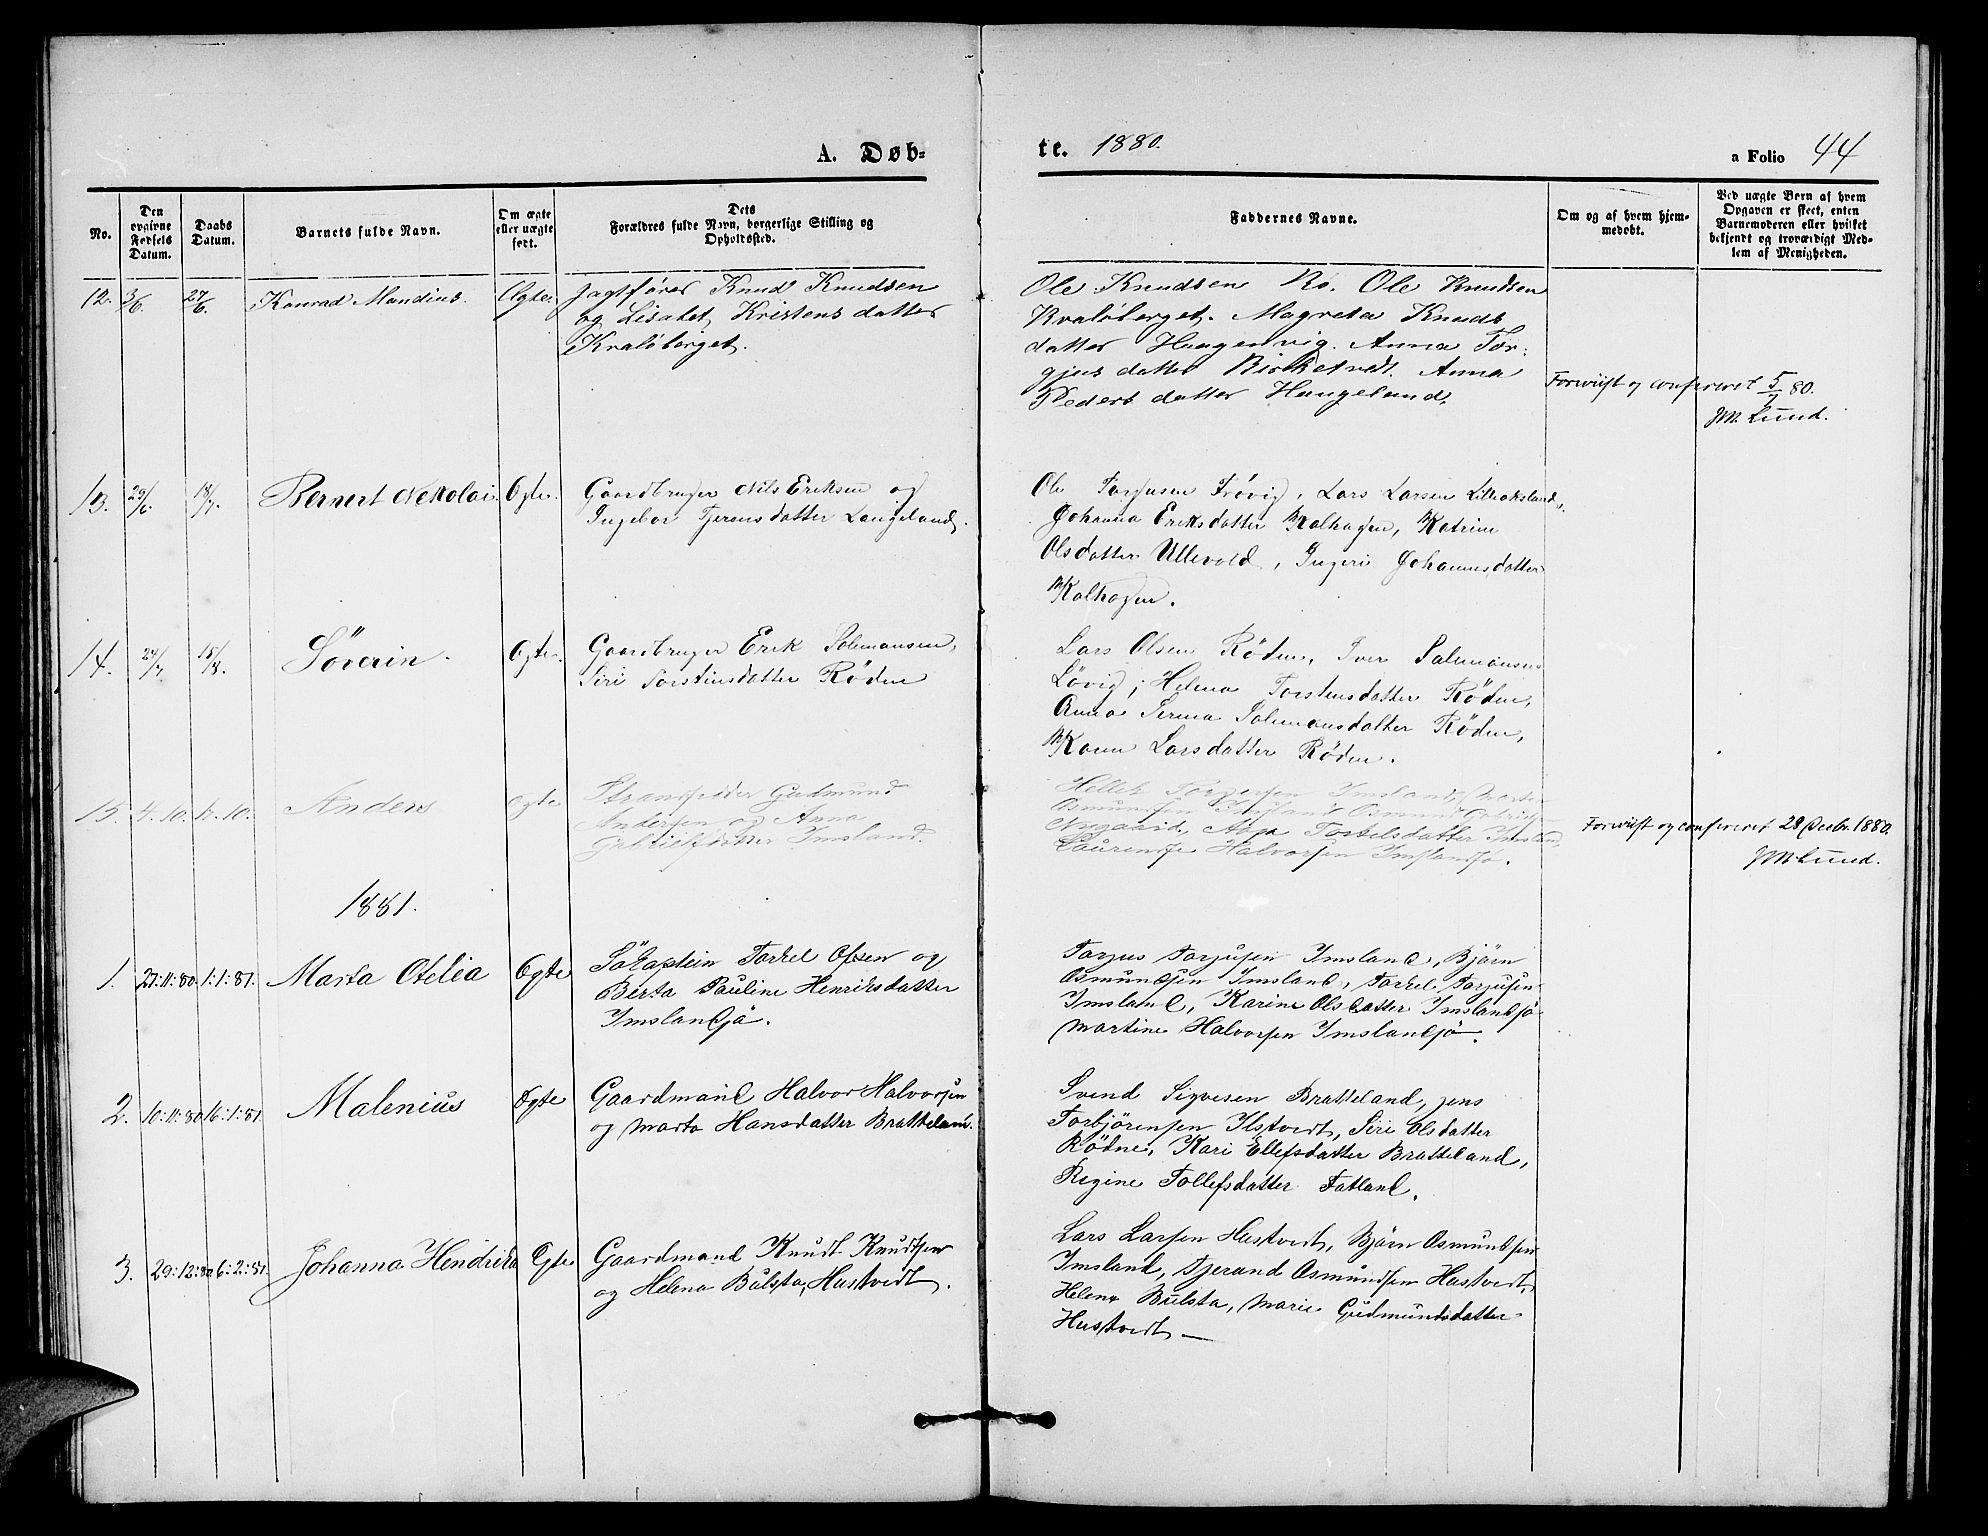 A. Døb-
te. 1880.
a Folio 44
No.
Den opgivne Fødsels Datum.
Daabs Datum.
Barnets fulde Navn.
Om ægte eller uægte født.
Dets
Forældres fulde Navn, borgerlige Stilling og Opholdssted.
Faddernes Navne.
Om og af hvem hjemmedøbt.
Ved uægte Børn af hvem Opgaven er skeet, enten Barnemoderen eller hvilket bekjendt og troværdigt Medlem af Menigheden.
12. 3/6. 27/6. Konrad Mandius. Ægte.
Jagtfører Knud Knudsen
og Lisabet Kristensdatter
Kvaløberget.
Ole Knudsen Ro. Ole Knudsen
Kvaløberget. Magreta Knuds
datter Haugenvig. Anna Tor-
gjusdatter Birketvedt. Anna
Pedersdatter Haugeland.
Foreviist og confereret 5/7 80.
JM. Lund.
13. 29/6. 18/7. Bernert Nekolai. Ægte.
Gaardbruger Nils Eriksen og
Ingebor Tjeransdatter Langeland.
Ole Torjusen Frøvig, Lars Larsen Lilleaksland,
Johanna Eriksdatter Kalhagen, Katrine
Olsdatter Ullevold, Ingeri Johannesdatter
Kalhagen.
14. 24/7. 15/8. Söverin. Ægte.
Gaardbruger Erik Salemansen,
Siri Torstensdatter Röden
Lars Olsen Röden, Iver Salemansen
Lövig; Helena Torstensdatter Röden,
Anna Serina Salemansdatter Röden,
Karen Larsdatter Röden.
15. 4.10. 17.10. Anders Ægte
Strandsidder Gudmund
Andersen og Anna
Gabrielsdatter Imsland.
Hellek Torgersen Imsland, Martin
Osmundsen Imsland Osmund
Nygaard, Aasa Torkelsdatter Imsland
Laurense Halvorsen Imslandsjø.
Foreviist og confereret 28 Decbr. 1880.
JM Lund.
1881.
1. 27:11:80. 1:1:81. Marta Otelia Ægte
Søcaptein Torkel Olsen og
Berta Pauline Henriksdatter
Imslandsjø.
Torjus Torjusen Imsland, Bjørn
Osmundsen Imsland, Torkel Torjusen
Imsland, Karine Olsdatter Imslandsjø
Martine Halvorsen Imslandsjø.
2. 10:11:80 16:1:81. Malenius Ægte
Gaardmand Halvor Halvorsen
og Marta Hansdatter Bratteland.
Svend Sigvesen Bratteland, Jens
Torbjörensen Ilstvedt, Siri Olsdatter
Rödne, Kari Ellefsdatter Bratteland,
Regine Tollefsdatter Fatland.
3. 29:12:80 6:2:81. Johanna Hendrika Ægte
Gaardmand Knudt Knudtsen
og Helena Bülsta, Hustvedt.
Lars Larsen Hustvedt, Bjørn Osmundsen
Imsland, Tjerand Osmundsen Hustvedt,
Helena Bulsta, Marie Gudmundsdatter
Hustvedt